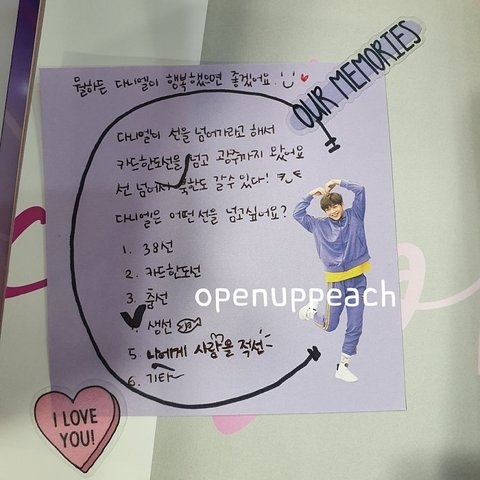 뭘하든 다니엘이 행복했으면 좋겠어요.
OUR MEMORIES
다니엘이 선을 넘어가라고 해서
카드한도선을 넘고 광주까지 왔어요
선 넘어서 북한도 갈수있다!
다니엘은 어떤선을 넘고싶어요?
1. 38선
2. 카드한도선
3. 춤선
생선
5. 나에게 사랑을 적선
6. 기타~
openuppeach
I LOVE
YOU!